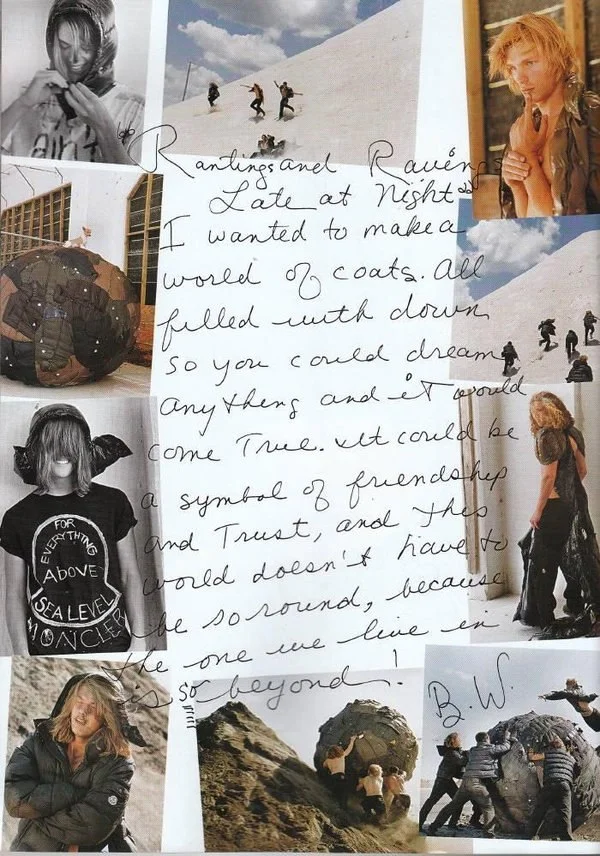 Rantings and Ravings
Late at Night
I wanted to make a
world of coats. All
filled with down
so you could dream
anything and it would
come True. It could be
a symbol of friendship
and Trust, and this
world doesn't have to
be so round, because
the one we live in
is so beyond!
B.W.
FOR
EVERYTHING
ABOVE
SEA LEVEL
MONCLER